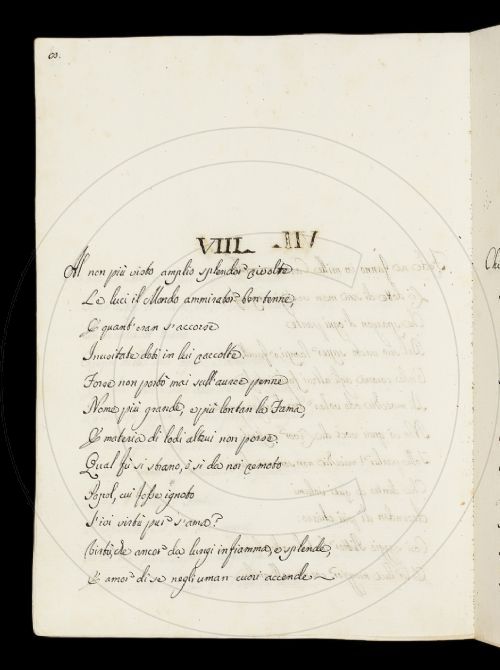 60.
VIII.
Al non più visto amplio splendor rivolte
Le luci il Mondo ammirator ben tenne,
E quant'eran s'accorse
Inusitate doti in lui raccolte
Forse non portò mai sull'auree penne
Nome più grande, e più lontan la Fama,
E materia di lodi altrui non porse.
Qual fu sì strano, o sì da noi remoto
Popol, cui fosse ignoto
S'ivi virtù pur s'ama?
Virtù, che ancor da lungi infiamma, e splende,
E amor di se negli uman cuori accende
Che